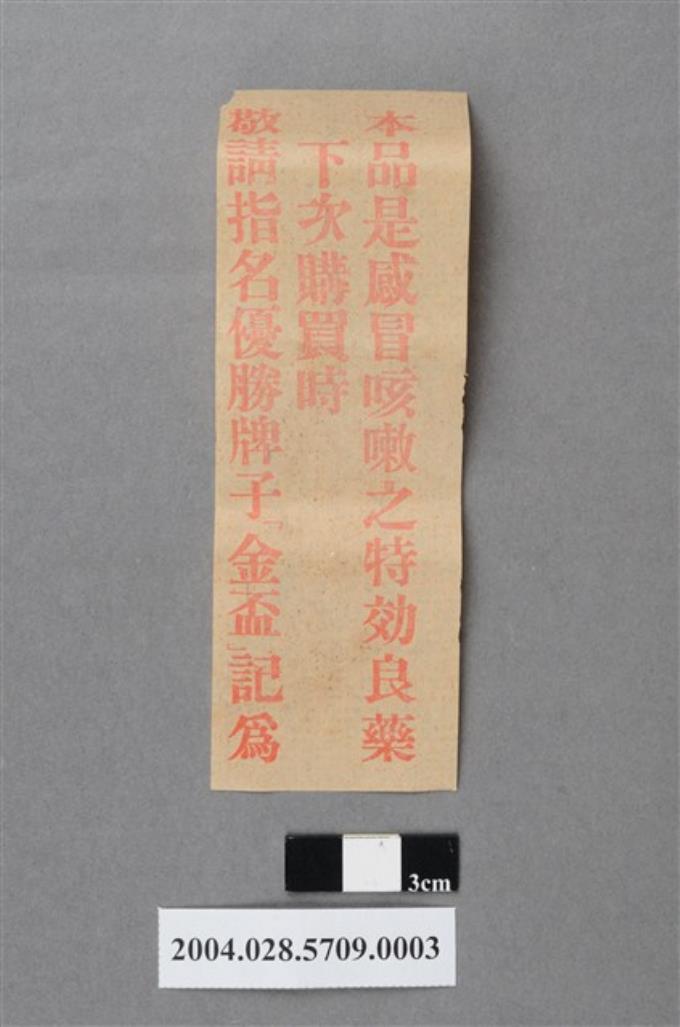 本品是感冒咳嗽之特効良藥
下次購買時
敬請指名優勝牌子「金盃」記爲
3cm
2004.028.5709.0003